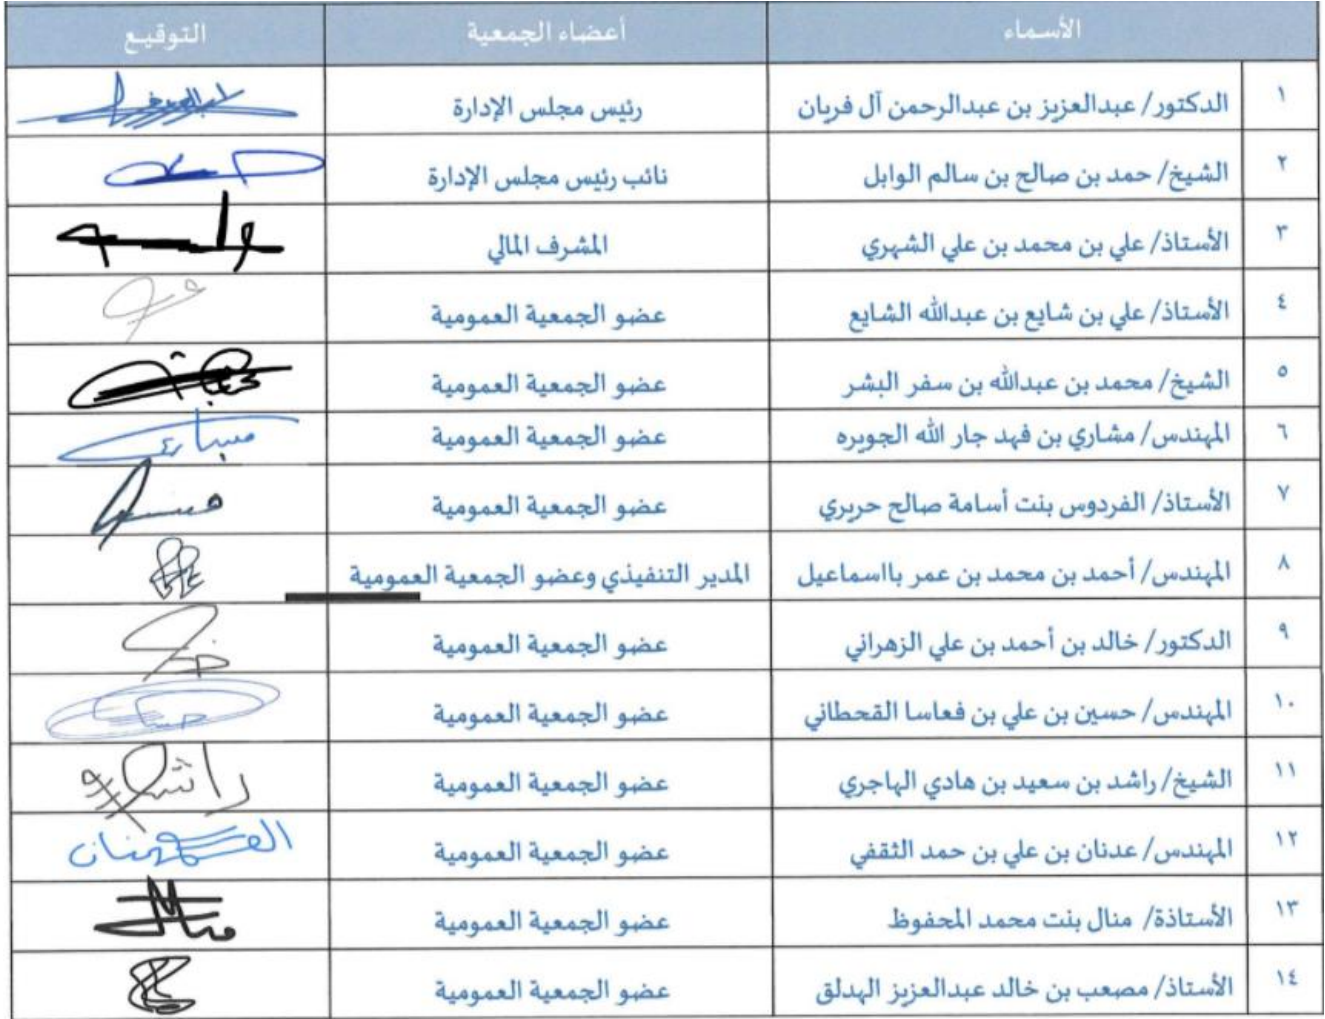 الأسماء أعضاء الجمعية التوقيع
١ الدكتور/ عبدالعزيز بن عبدالرحمن آل فريان رئيس مجلس الإدارة
٢ الشيخ/ حمد بن صالح بن سالم الوابل نائب رئيس مجلس الإدارة
٣ الأستاذ/ علي بن محمد بن علي الشهري المشرف المالي
٤ الأستاذ/ علي بن شايع بن عبدالله الشايع عضو الجمعية العمومية
٥ الشيخ/ محمد بن عبدالله بن سفر البشر عضو الجمعية العمومية
٦ المهندس/ مشاري بن فهد جار الله الجويره عضو الجمعية العمومية
٧ الأستاذ/ الفردوس بنت أسامة صالح حريري عضو الجمعية العمومية
٨ المهندس/ أحمد بن محمد بن عمر بااسماعيل المدير التنفيذي وعضو الجمعية العمومية
٩ الدكتور/ خالد بن أحمد بن علي الزهراني عضو الجمعية العمومية
١٠ المهندس/ حسين بن علي بن فعاسا القحطاني عضو الجمعية العمومية
١١ الشيخ/ راشد بن سعيد بن هادي الهاجري عضو الجمعية العمومية
١٢ المهندس/ عدنان بن علي بن حمد الثقفي عضو الجمعية العمومية
١٣ الأستاذة/ منال بنت محمد المحفوظ عضو الجمعية العمومية
١٤ الأستاذ/ مصعب بن خالد عبدالعزيز الهدلق عضو الجمعية العمومية